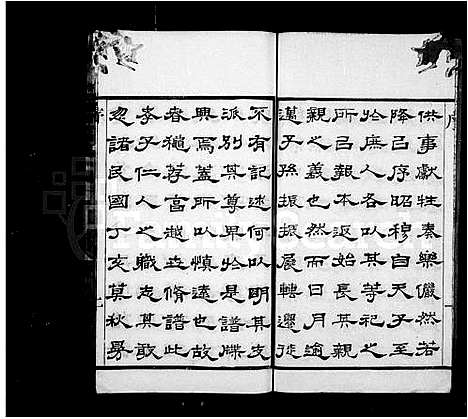 序
供事獻牲奏樂儼然若
降已序昭穆自天子至
於庶人各以其等祀之
所已報本返始長其親
親之義也然而日月逾
邁子孫振振展轉遷徙
不有記述何以明其支
派別其尊卑於是譜牒
興焉蓋所以慎遠也故
荐宮越世脩譜此
孝子仁人之職志其敢
忽諸民國丁亥莫秋
序
FamilySearch